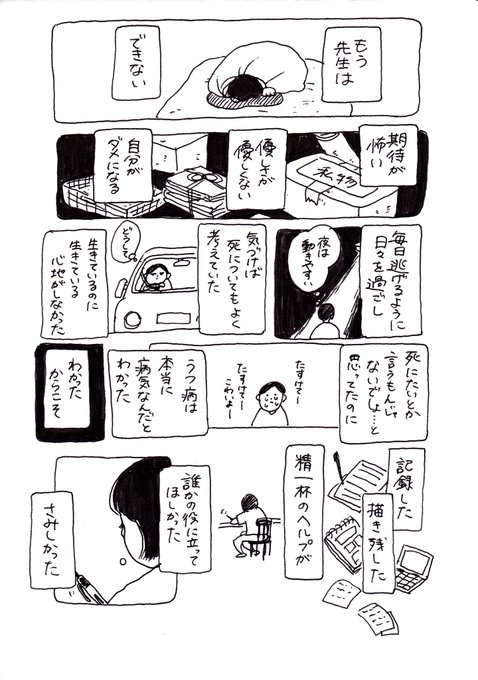 もう
先生は
できない
期待が
怖い
私物
優しさが
優しくない
自分が
ダメになる
毎日逃げるように
日々を過ごし
夜は
動きやすい
気づけば
死についてもよく
考えていた
どうしてー
生きているのに
生きている
心地がしなかった
死にたいとか
言うもんじゃ
ないでしょ…と
思ってたのに
たすけてー
たすけてー
こわいよー
うつ病は
本当に
病気なんだと
わかった
わかった
からこそ
記録した
描き残した
精一杯のヘルプが
誰かの役に立って
ほしかった
さみしかった